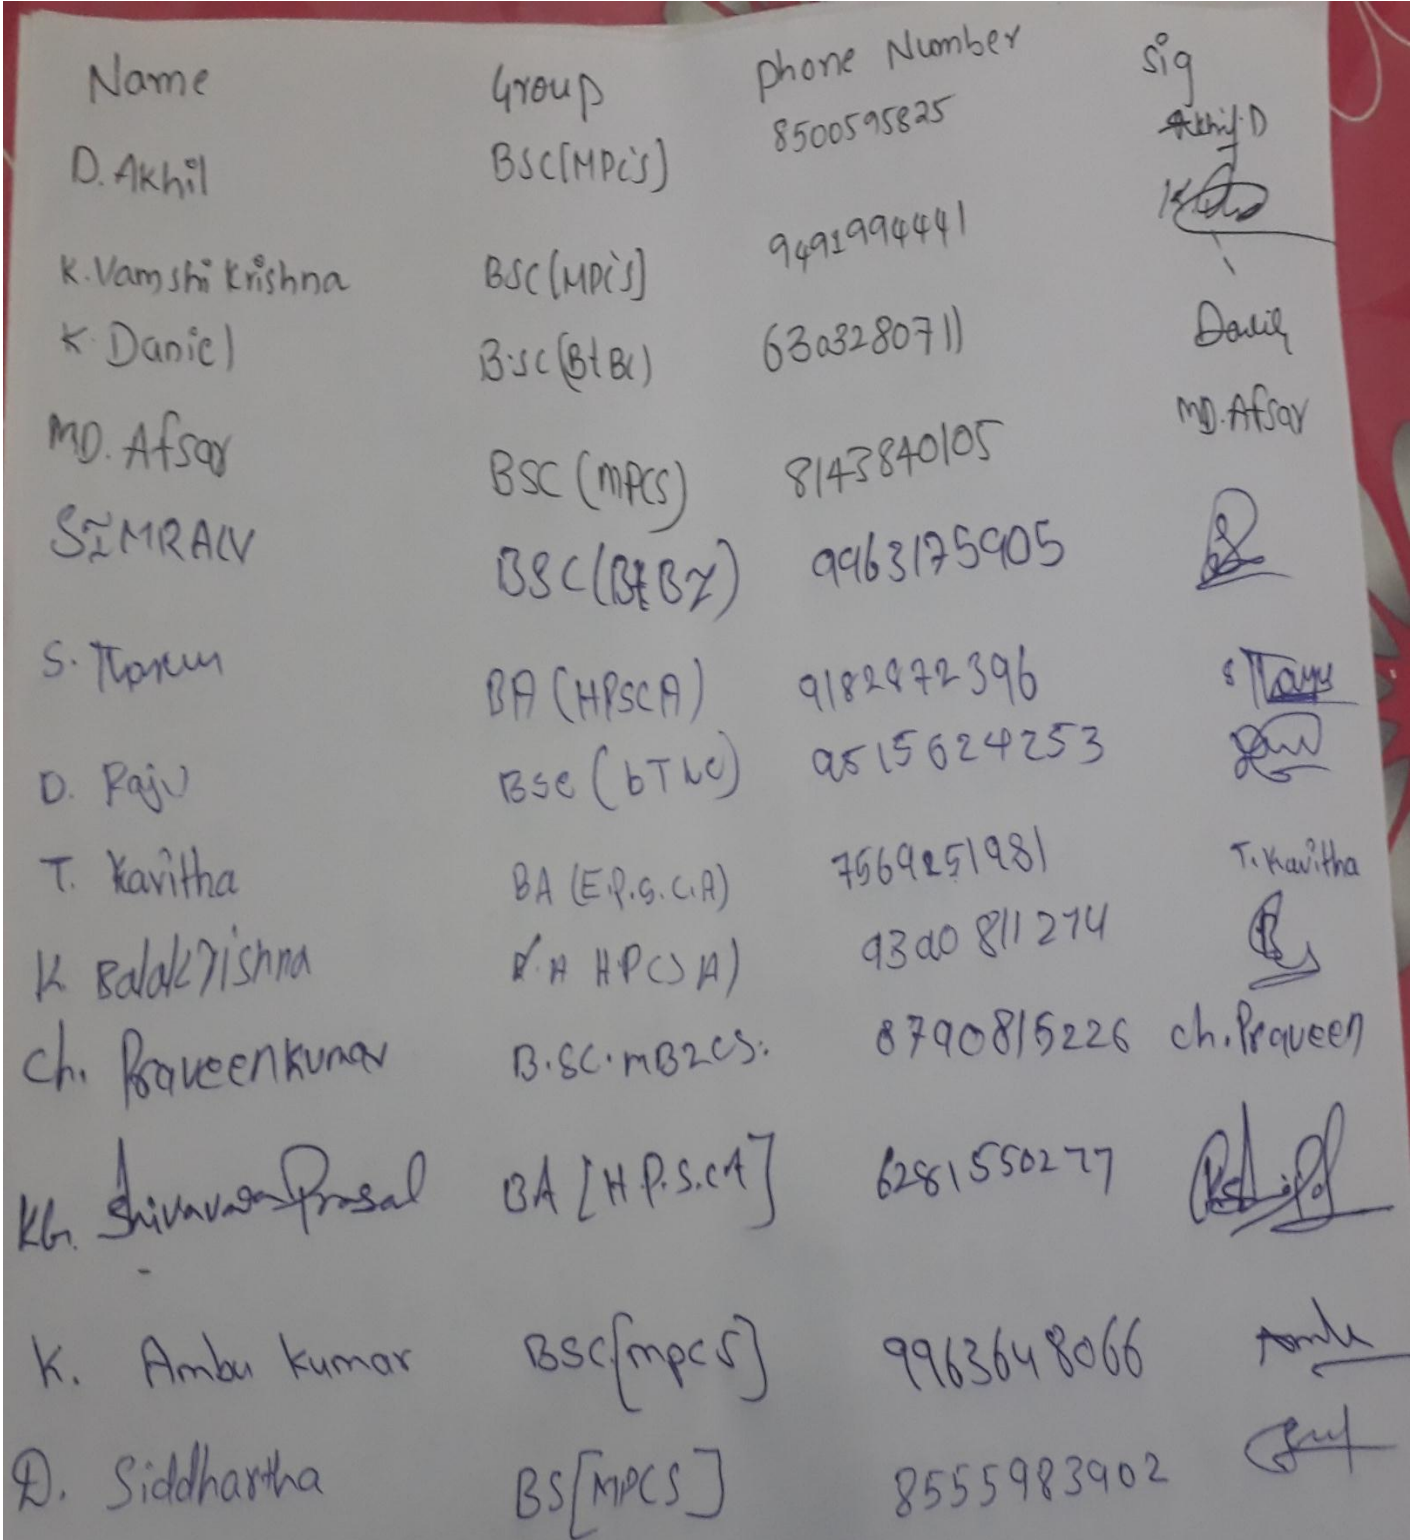 Name Group phone Number sig
D. Akhil BSC[MPC'S] 8500595825 Akhil.D
K. Vamshi Krishna BSC[MPC'S] 9491994441
K. Daniel B.sc(BtBc) 6303280711 Daniel
MD. Afsar BSC (MPCS) 8143840105 MD. Afsar
SIMRAN BSC(BtBZ) 9963175905
S. Tarun BA (HPSCA) 9182972396
D. Raju BSC 9515624253
T. Kavitha BA (E.P.S.C.A) 7569251981 T. Kavitha
K Balakrishna A HPCSA) 811274
ch. Praveenkumar B.SC.MBZCS. 8790815226 ch. Praveen
Prasad BA [H P.S.CA] 6281550277
K. Ambu kumar BSC[mpcs] 9963648066
D. Siddhartha BS[MPCS] 8555983902